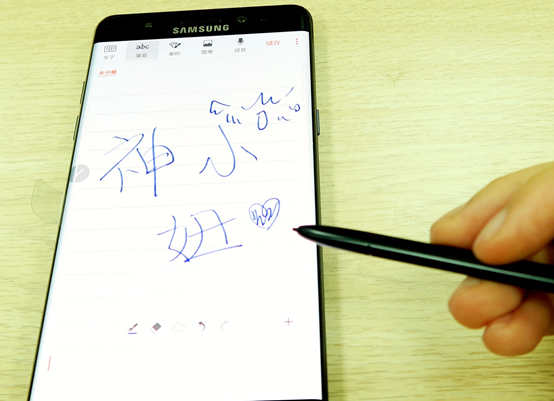 SAMSUNG
abc
文字 筆刷 圖像 語音 儲存
未分類
神小
妞